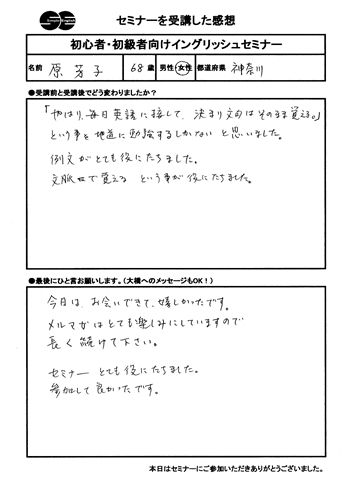 セミナーを受講した感想
初心者・初級者向けイングリッシュセミナー
名前 原 芳子 68歳 男性・女性 都道府県 神奈川
●受講前と受講後でどう変わりましたか？
「やはり、毎日英語に接して、決まり文句はそのまま覚える。」
という事を地道に勉強するしかない と思いました。
例文がとても役にたちました。
文脈で覚える という事が役にたちました。
●最後にひと言お願いします。（大橋へのメッセージもOK！）
今日は、お会いできて、嬉しかったです。
メルマガはとても楽しみにしていますので
長く続けて下さい。
セミナー とても役にたちました。
参加して良かったです。
本日はセミナーにご参加いただきありがとうございました。